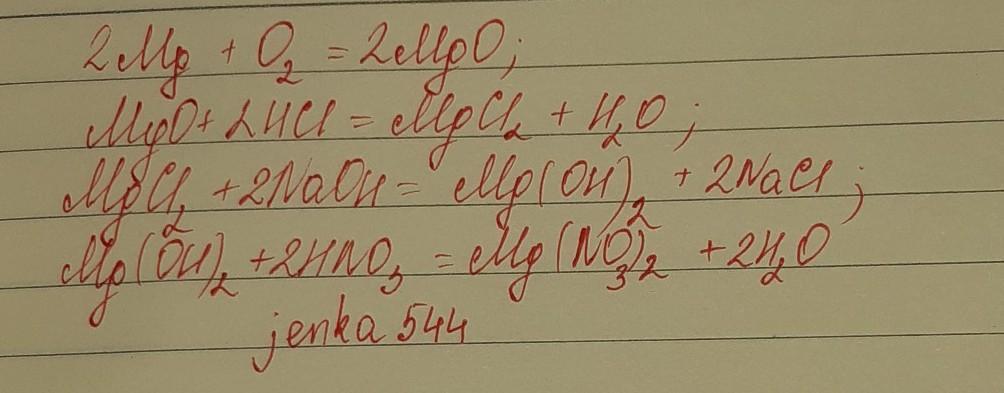 2Mg + O₂ = 2MgO;
MgO + 2HCl = MgCl₂ + H₂O;
MgCl₂ + 2NaOH = Mg(OH)₂ + 2NaCl;
Mg(OH)₂ + 2HNO₃ = Mg(NO₃)₂ + 2H₂O
jenka 544